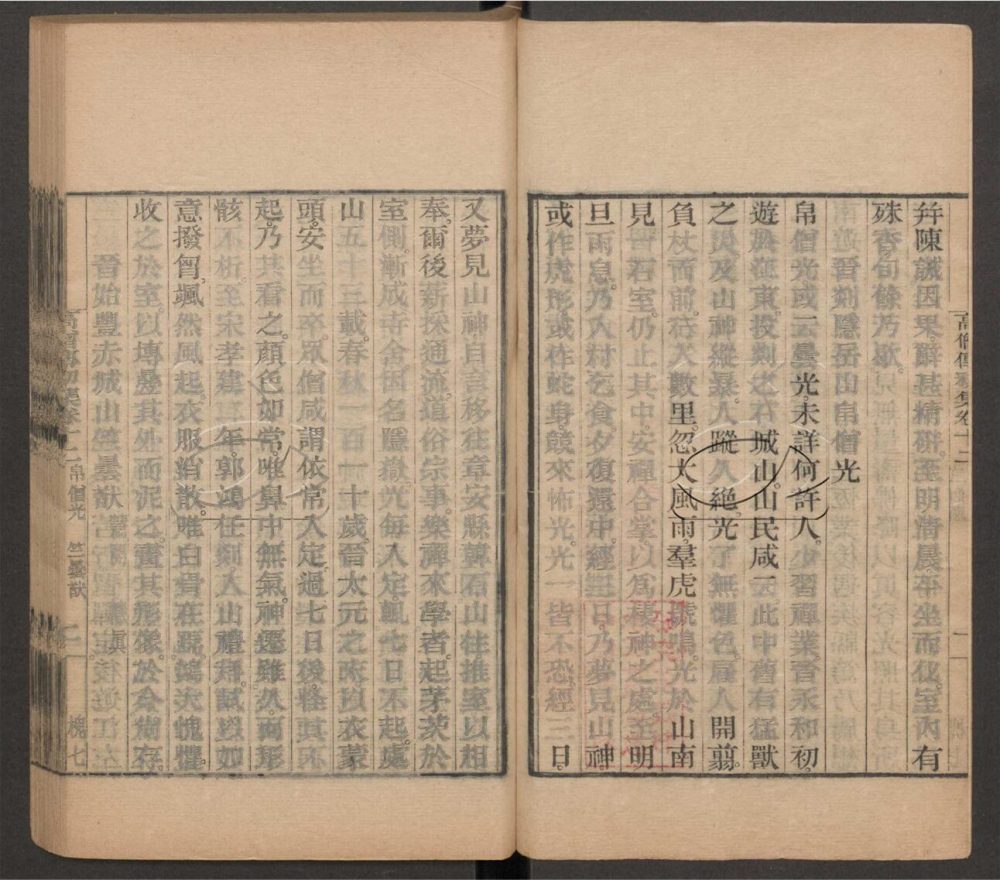 幷陳誠因果辭甚精研至明清晨卒坐而化室內有
殊香旬餘乃歇
晉剡隱岳山帛僧光
帛僧光或云曇光未詳何許人少習禪業晉永和初
遊於江東投剡之石城山山民咸云此中舊有猛獸
之災及山神縱暴人蹤久絕光了無懼色雇人開翦
負杖而前行入數里忽大風雨羣虎號鳴光於山南
見一石室仍止其中安禪合掌以爲棲神之處至明
旦雨息乃入村乞食夕復還中經三日乃夢見山神
或作虎形或作蛇身競來怖光光一皆不恐經三日
又夢見山神自言移往章安縣韓石山住推室以相
奉爾後薪採通流道俗宗事樂禪來學者起茅茨於
室側漸成寺舍因名隱嶽光每入定輒七日不起處
山五十三載春秋一百一十歲晉太元之末以衣蒙
頭安坐而卒眾僧咸謂依常入定過七日後怪其不
起乃共看之顏色如常唯鼻中無氣神遷雖久而形
骸不朽至宋孝建二年郭鴻任剡入山禮拜試以如
意撥胷颯然風起衣服銷散唯白骨在焉鴻大愧懼
收之於室以塼壘其外而泥之畫其形像於今尚存
晉始豐赤城山竺曇猷
高僧傳初集卷十二 帛僧光 竺曇猷 二 槐七